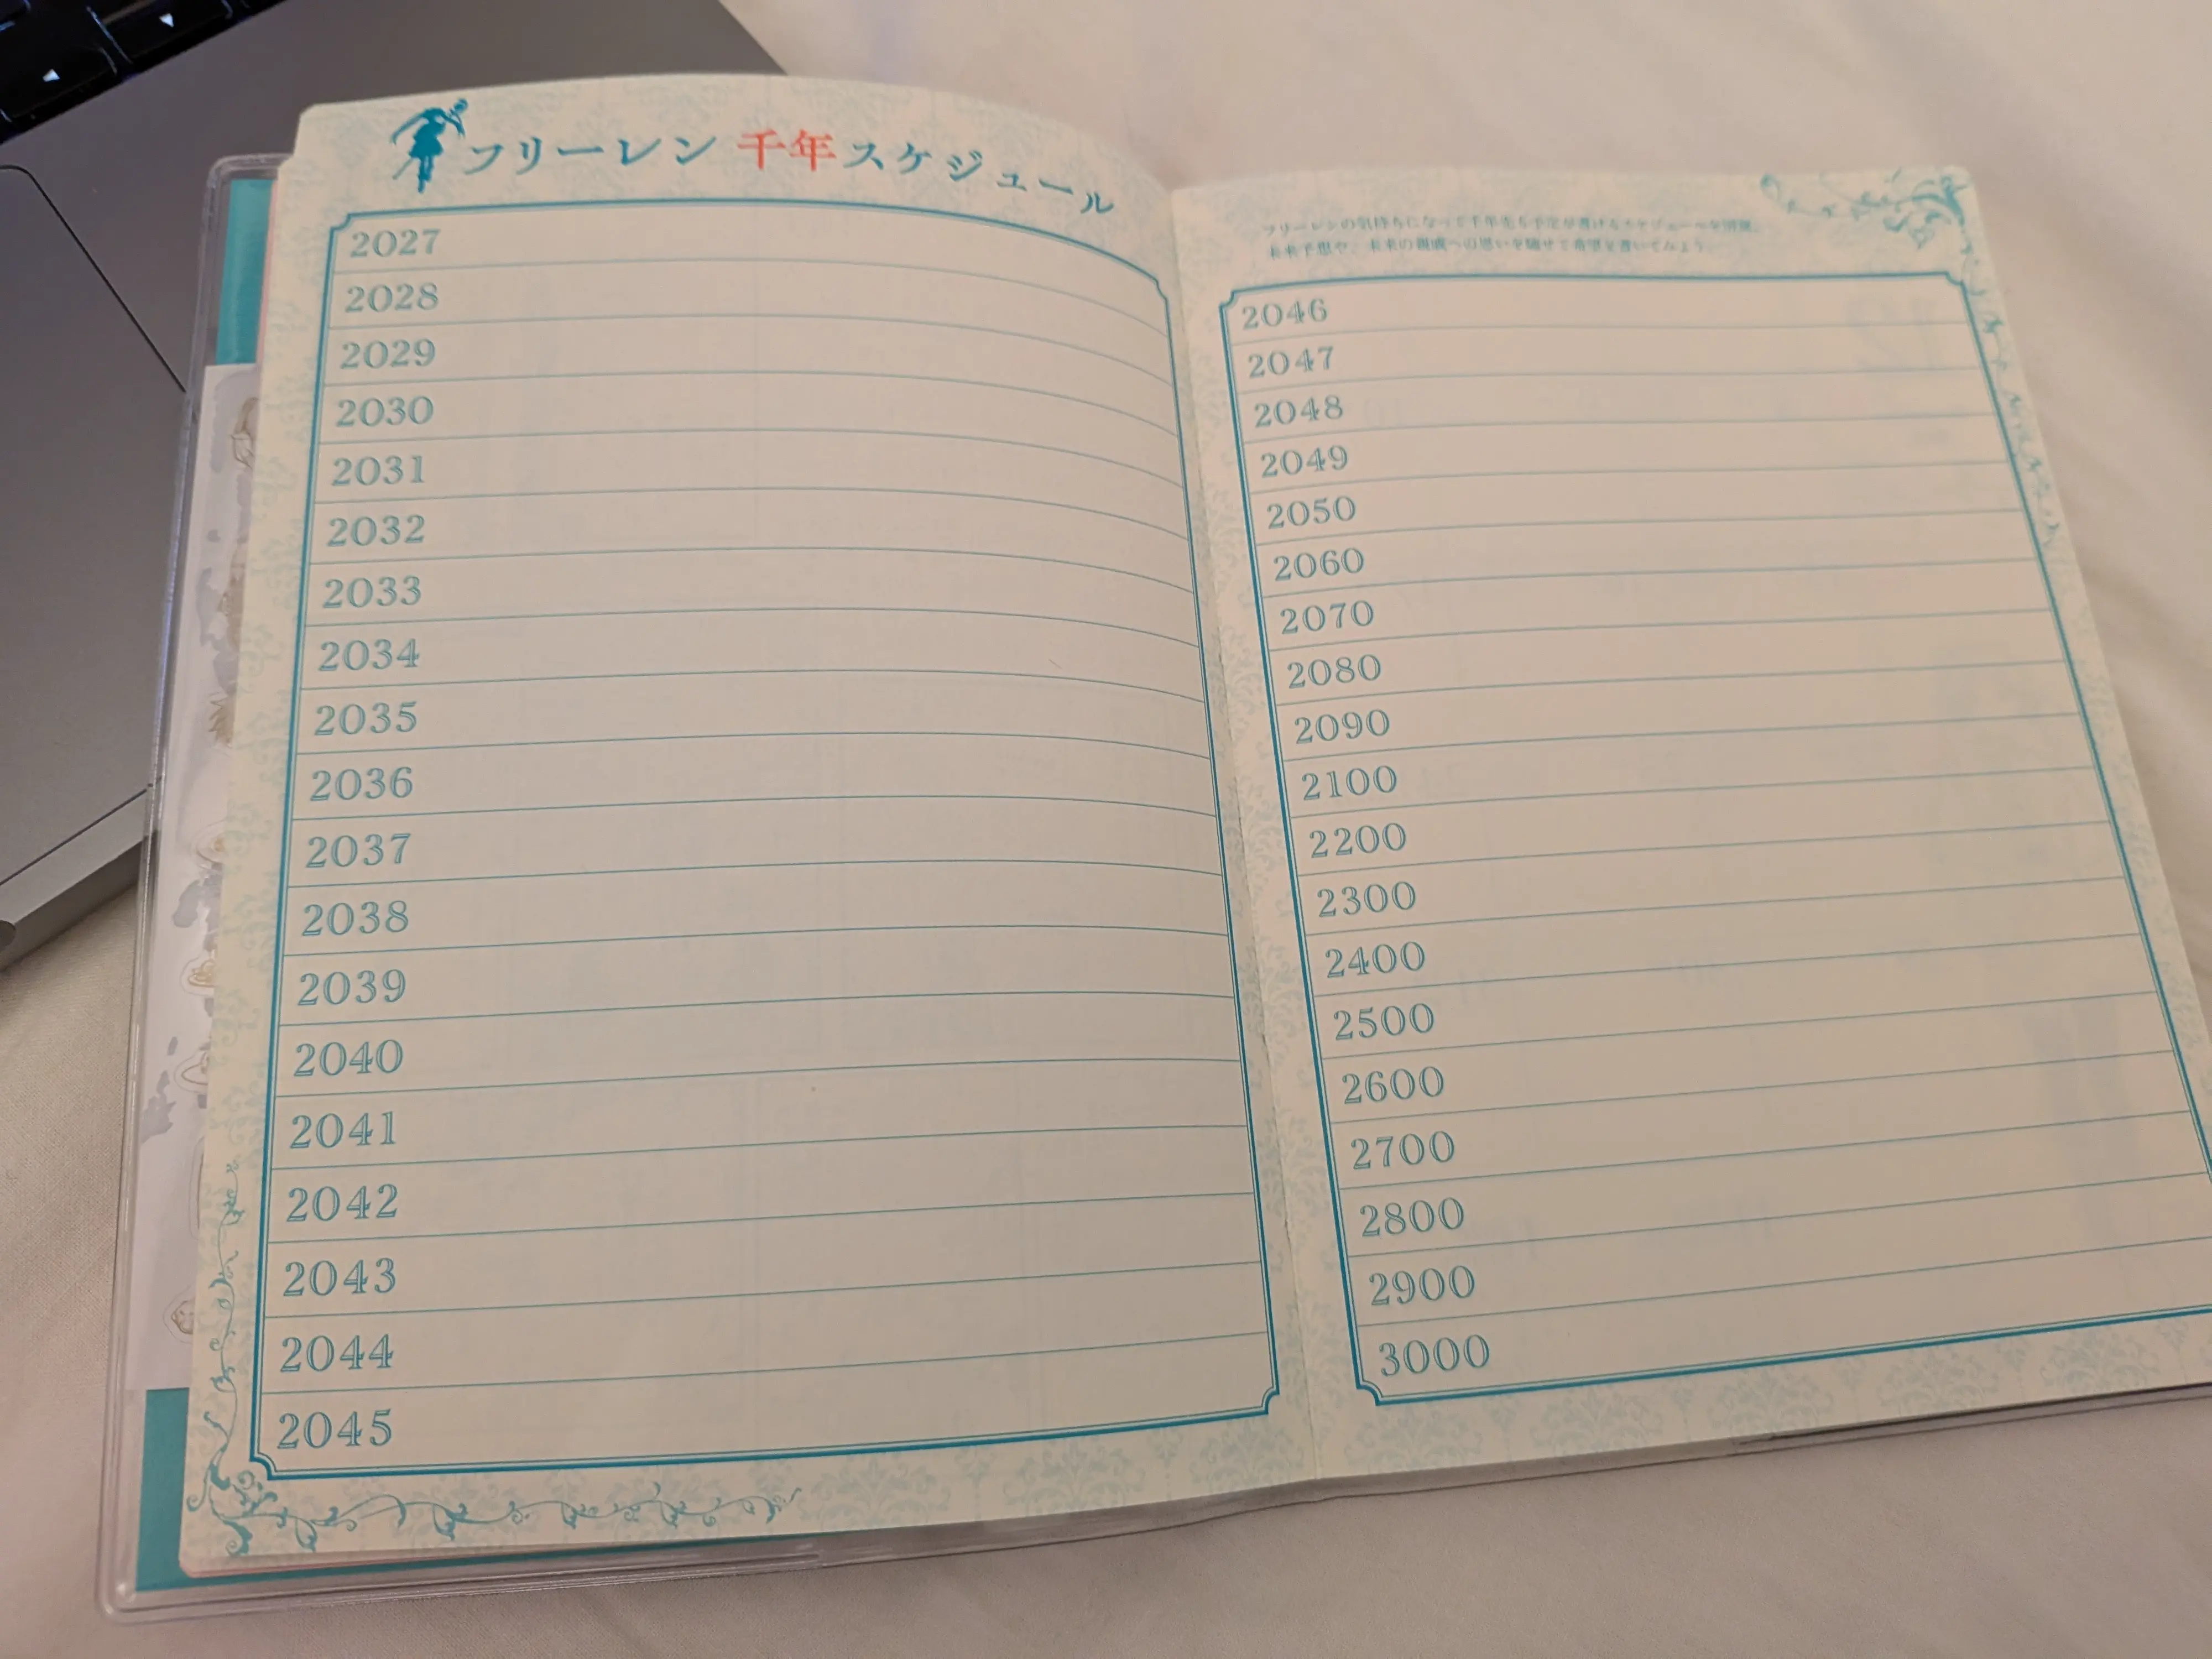 フリーレン 千年スケジュール
2027
2028
2029
2030
2031
2032
2033
2034
2035
2036
2037
2038
2039
2040
2041
2042
2043
2044
2045
フリーレンの気持ちになって千年先も予定が書けるスケジュールを用意。
未来予想や、未来の親戚への思いを馳せて希望を書いてみよう。
2046
2047
2048
2049
2050
2060
2070
2080
2090
2100
2200
2300
2400
2500
2600
2700
2800
2900
3000